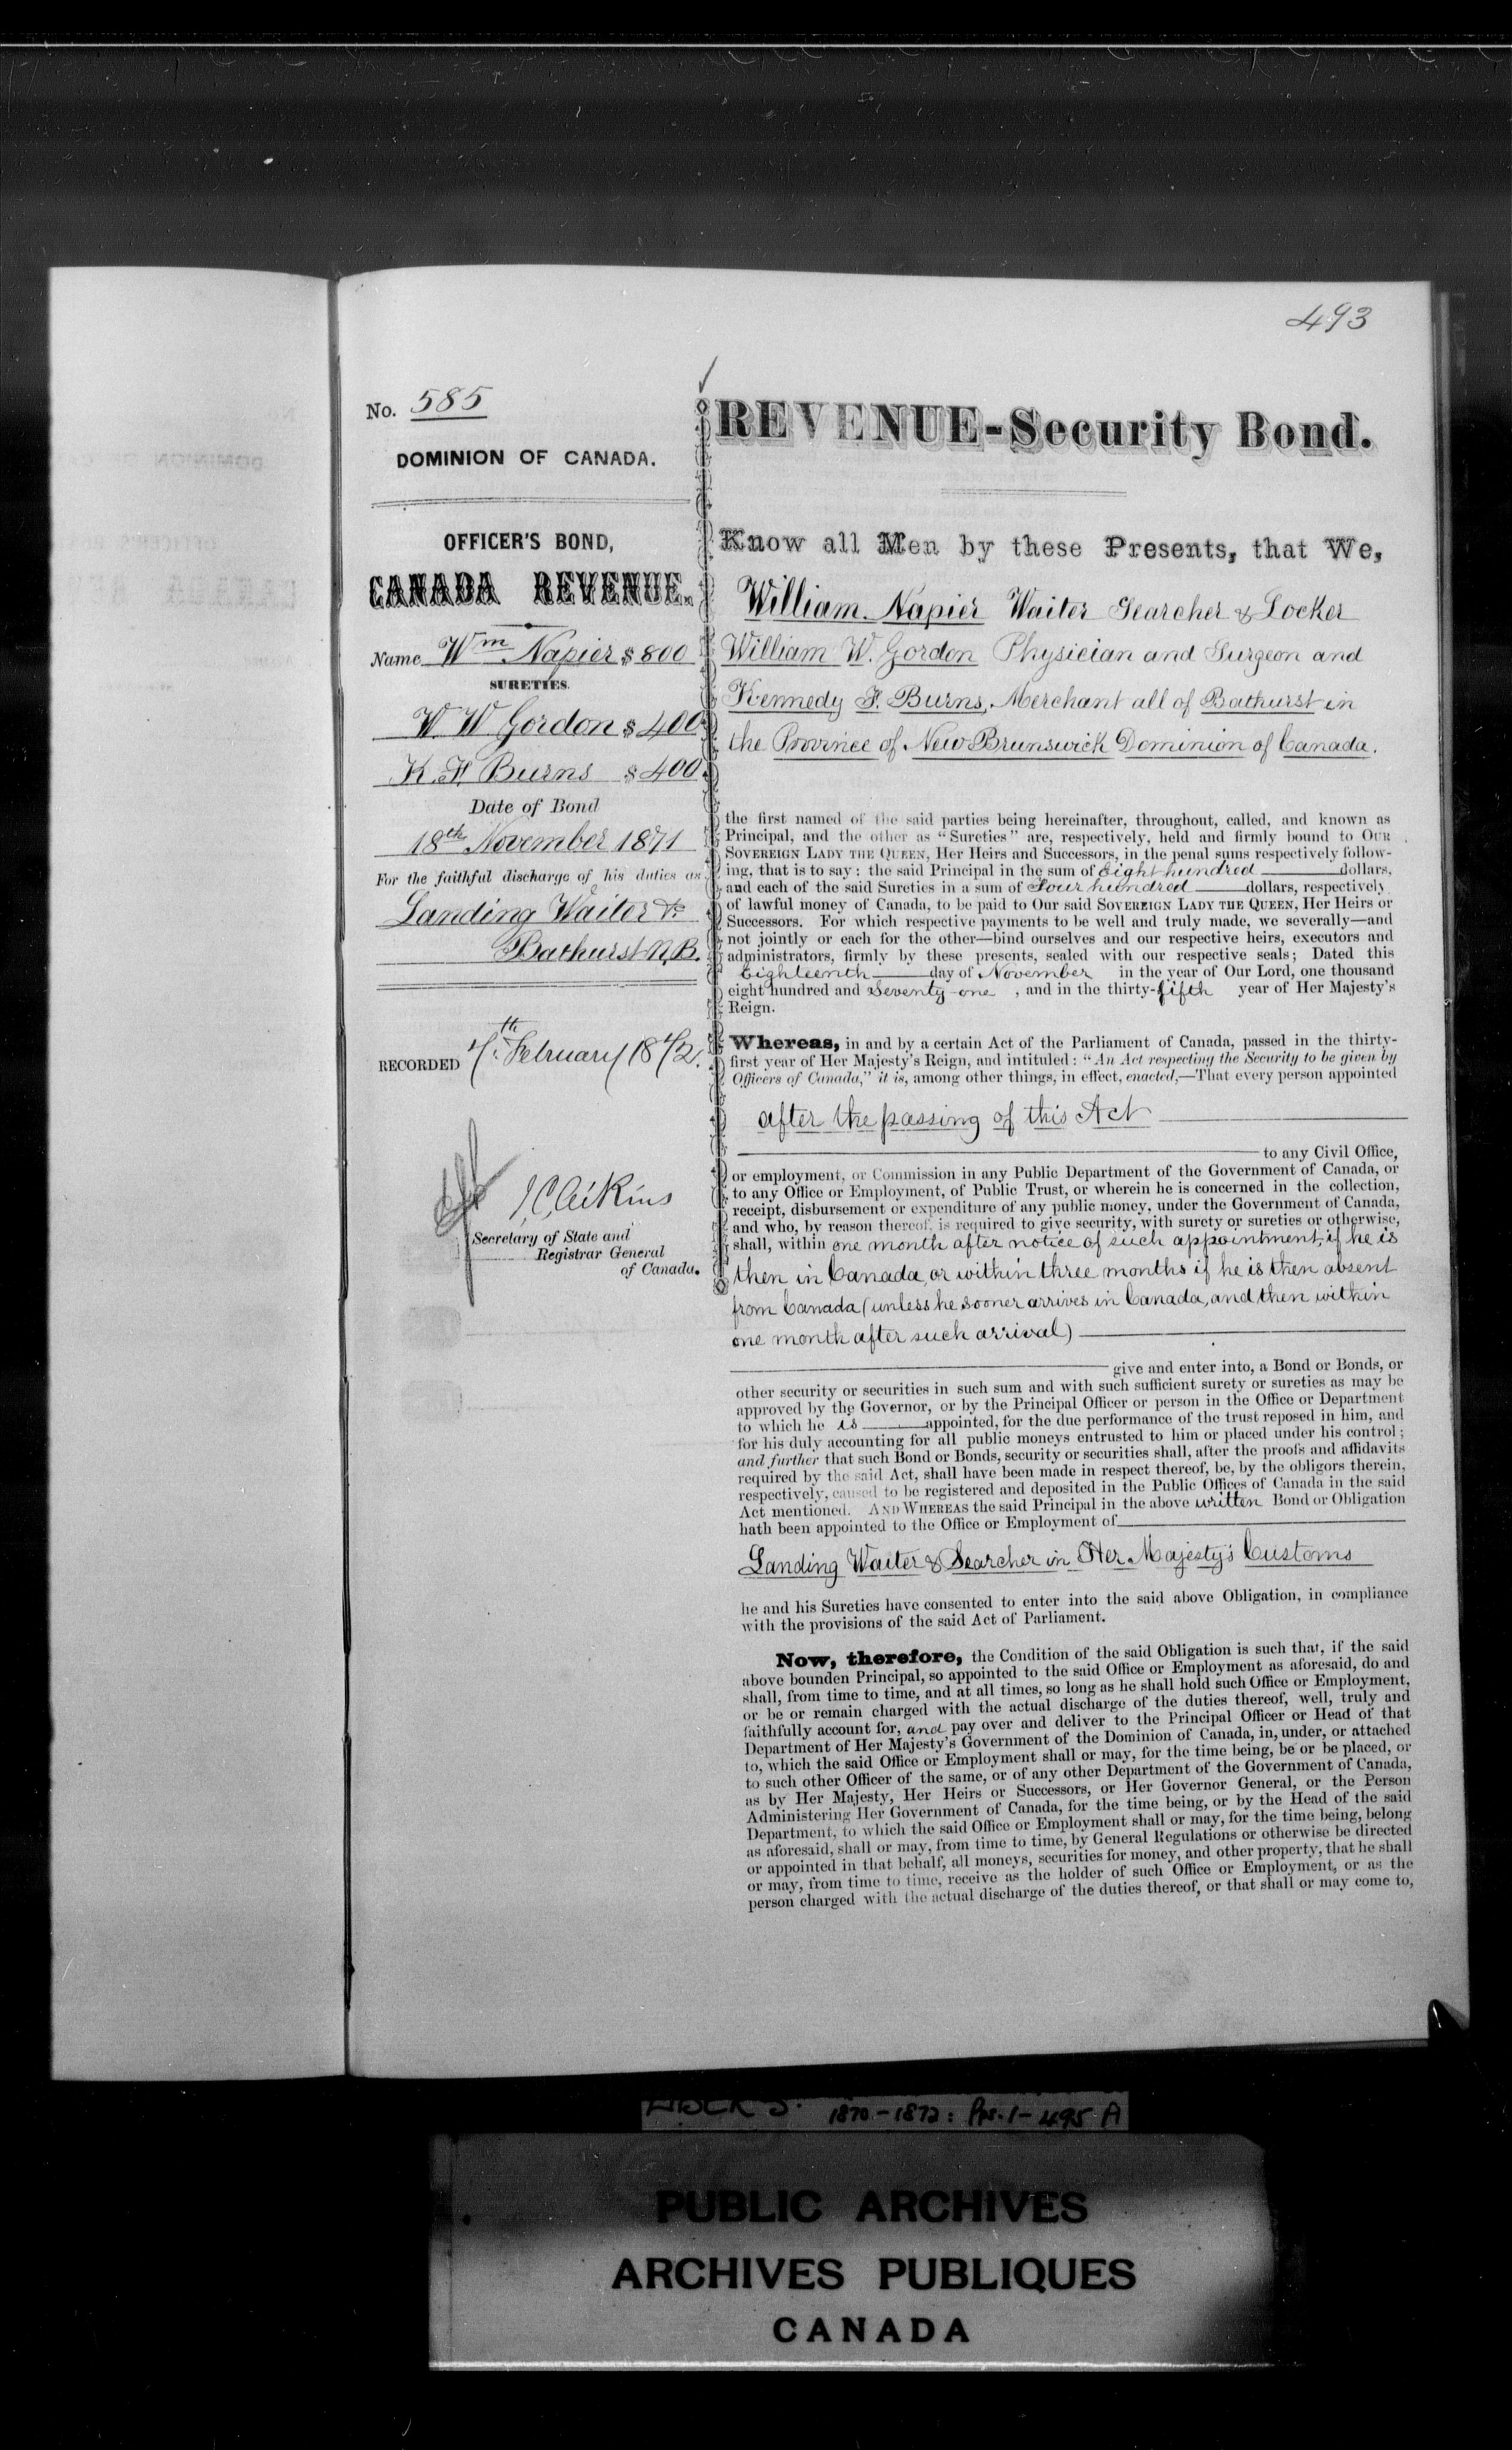 493
No. 585
DOMINION OF CANADA.
OFFICER'S BOND,
CANADA REVENUE.
Name Wm Napier $ 800
SURETIES.
W. W. Gordon $ 400
K. F. Burns $ 400
Date of Bond
18th November 1871
For the faithful discharge of his duties as
Landing Waiter &c
Bathurst N.B.
RECORDED 7th February 1872.
J C Aikins
Secretary of State and
Registrar General
of Canada.
REVENUE-Security Bond.
Know all Men by these Presents, that We,
William Napier Waiter Searcher & Locker
William W. Gordon Physician and Surgeon and
Kennedy F. Burns, Merchant all of Bathurst in
the Province of New Brunswick Dominion of Canada.
the first named of the said parties being hereinafter, throughout, called, and known as
Principal, and the other as "Sureties" are, respectively, held and firmly bound to OUR
SOVEREIGN LADY THE QUEEN, Her Heirs and Successors, in the penal sums respectively follow-
ing, that is to say: the said Principal in the sum of Eight hundred dollars,
and each of the said Sureties in a sum of Four hundred dollars, respectively
of lawful money of Canada, to be paid to Our said SOVEREIGN LADY THE QUEEN, Her Heirs or
Successors. For which respective payments to be well and truly made, we severally—and
not jointly or each for the other—bind ourselves and our respective heirs, executors and
administrators, firmly by these presents, sealed with our respective seals; Dated this
Eighteenth day of November in the year of Our Lord, one thousand
eight hundred and Seventy-one , and in the thirty-fifth year of Her Majesty's
Reign.
Whereas, in and by a certain Act of the Parliament of Canada, passed in the thirty-
first year of Her Majesty's Reign, and intituled: "An Act respecting the Security to be given by
Officers of Canada," it is, among other things, in effect, enacted,—That every person appointed
after the passing of this Act
to any Civil Office,
or employment, or Commission in any Public Department of the Government of Canada, or
to any Office or Employment, of Public Trust, or wherein he is concerned in the collection,
receipt, disbursement or expenditure of any public money, under the Government of Canada,
and who, by reason thereof, is required to give security, with surety or sureties or otherwise,
shall, within one month after notice of such appointment, if he is
then in Canada, or within three months if he is then absent
from Canada (unless he sooner arrives in Canada, and then within
one month after such arrival)
give and enter into, a Bond or Bonds, or
other security or securities in such sum and with such sufficient surety or sureties as may be
approved by the Governor, or by the Principal Officer or person in the Office or Department
to which he is appointed, for the due performance of the trust reposed in him, and
for his duly accounting for all public moneys entrusted to him or placed under his control;
and further that such Bond or Bonds, security or securities shall, after the proofs and affidavits
required by the said Act, shall have been made in respect thereof, be, by the obligors therein,
respectively, caused to be registered and deposited in the Public Offices of Canada in the said
Act mentioned. AND WHEREAS the said Principal in the above written Bond or Obligation
hath been appointed to the Office or Employment of
Landing Waiter & Searcher in Her Majesty's Customs
he and his Sureties have consented to enter into the said above Obligation, in compliance
with the provisions of the said Act of Parliament.
Now, therefore, the Condition of the said Obligation is such that, if the said
above bounden Principal, so appointed to the said Office or Employment as aforesaid, do and
shall, from time to time, and at all times, so long as he shall hold such Office or Employment,
or be or remain charged with the actual discharge of the duties thereof, well, truly and
faithfully account for, and pay over and deliver to the Principal Officer or Head of that
Department of Her Majesty's Government of the Dominion of Canada, in, under, or attached
to, which the said Office or Employment shall or may, for the time being, be or be placed, or
to such other Officer of the same, or of any other Department of the Government of Canada,
as by Her Majesty, Her Heirs or Successors, or Her Governor General, or the Person
Administering Her Government of Canada, for the time being, or by the Head of the said
Department, to which the said Office or Employment shall or may, for the time being, belong
as aforesaid, shall or may, from time to time, by General Regulations or otherwise be directed
or appointed in that behalf, all moneys, securities for money, and other property, that he shall
or may, from time to time, receive as the holder of such Office or Employment, or as the
person charged with the actual discharge of the duties thereof, or that shall or may come to,
1870-1872: Pps. 1-495 A
PUBLIC ARCHIVES
ARCHIVES PUBLIQUES
CANADA